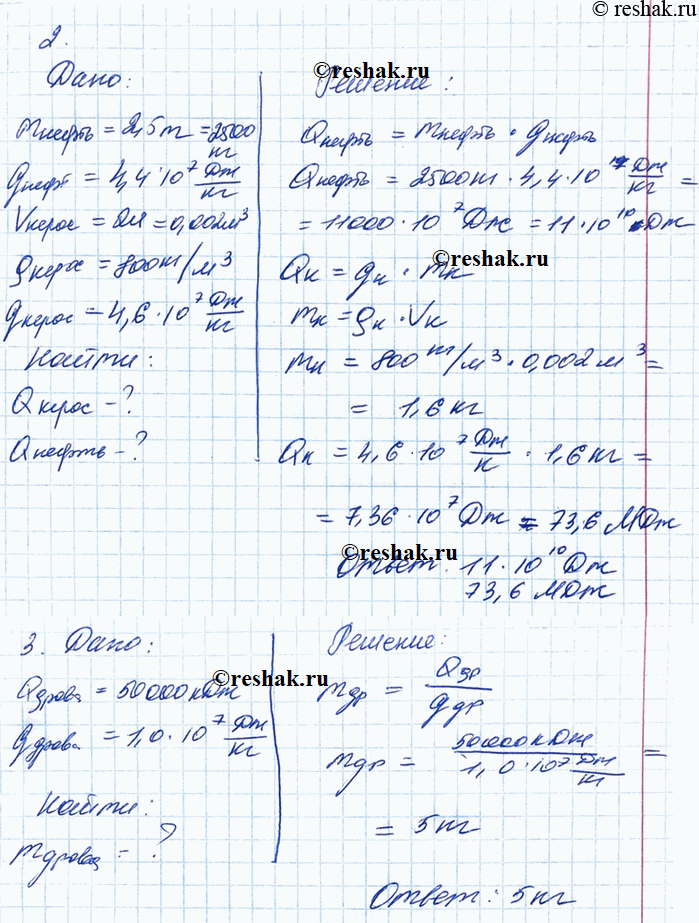 © reshak.ru
2.
Дано:
mнефть = 2,5 т = 2500 кг
qнефт = 4,4·10⁷ Дж/кг
Vкерос = 2л = 0,002м³
ρкерос = 800 кг/м³
qкерос = 4,6·10⁷ Дж/кг
Найти:
Qкерос – ?
Qнефть – ?
© reshak.ru
Решение:
Qнефть = mнефть · qнефть
Qнефть = 2500кг · 4,4·10⁷ Дж/кг =
= 11000·10⁷ Дж = 11·10¹⁰ Дж
© reshak.ru
Qк = qк · mк
mк = ρк · Vк
mк = 800 кг/м³ · 0,002 м³ =
= 1,6 кг
Qк = 4,6·10⁷ Дж/к · 1,6 кг =
= 7,36·10⁷ Дж = 73,6 МДж
© reshak.ru
Ответ: 11·10¹⁰ Дж
73,6 МДж
3. Дано:
Qдрова = 50000 кДж
© reshak.ru
qдрова = 1,0·10⁷ Дж/кг
Найти:
mдрова = ?
Решение:
mдр = Qдр/qдр
mдр = 50000 кДж/1,0·10⁷ Дж/кг =
= 5 кг
Ответ: 5 кг